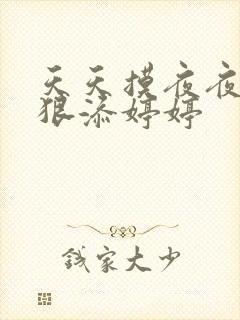 天天摸夜夜
狠添婷婷
钱家大少